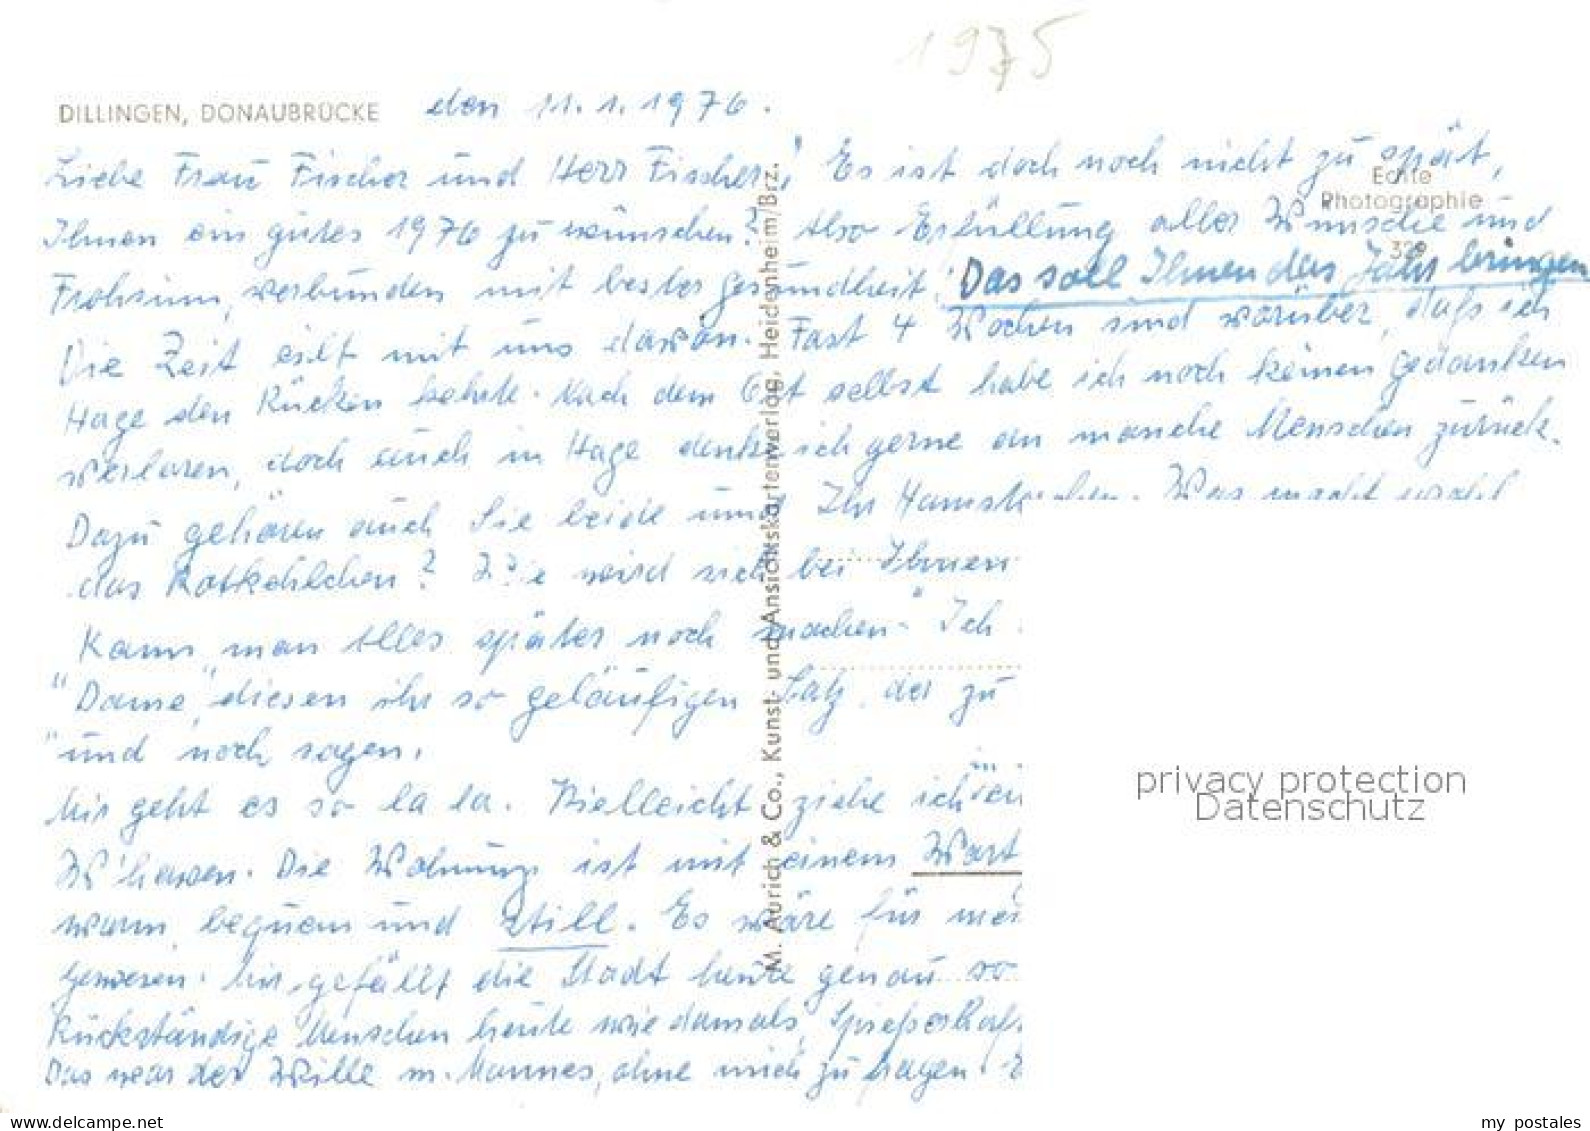 1975
DILLINGEN, DONAUBRÜCKE den 11. 1. 1976.
Liebe Frau Fischer und Herr Fischer! Es ist doch noch nicht zu spät,
Echte
Photographie
329
Ihnen ein gutes 1976 zu wünschen? Also Erfüllung aller Wünsche und
Frohsinn, verbunden mit bester Gesundheit! Das soll Ihnen das Jahr bringen
Die Zeit eilt mit uns davon. Fast 4 Wochen sind vorüber, daß ich
Hage den Rücken kehrte. Nach dem Ort selbst habe ich noch keinen Gedanken
verloren, doch auch in Hage denke ich gerne an manche Menschen zurück.
Dazu gehören auch Sie beide und Ihr Was macht wohl
das Rotkehlchen? Wie wird sich bei Ihnen
Kann man Alles später noch machen" Ich
"Dame" diesen ihr so geläufigen Satz, der zu
"und noch sagen.
Mir geht es so la la. Vielleicht ziehe ich in
W'haven. Die Wohnung ist mit einem
warm, bequem und still. Es wäre für
gewesen. Mir gefällt die Stadt heute genau so
Rückständige Menschen heute wie damals,
Das war der Wille m. Mannes, ohne mich zu fragen.
M. Aurich & Co., Kunst- und Ansichtskartenverlag, Heidenheim/Brz.
privacy protection
Datenschutz
delcampe.net
my_postales